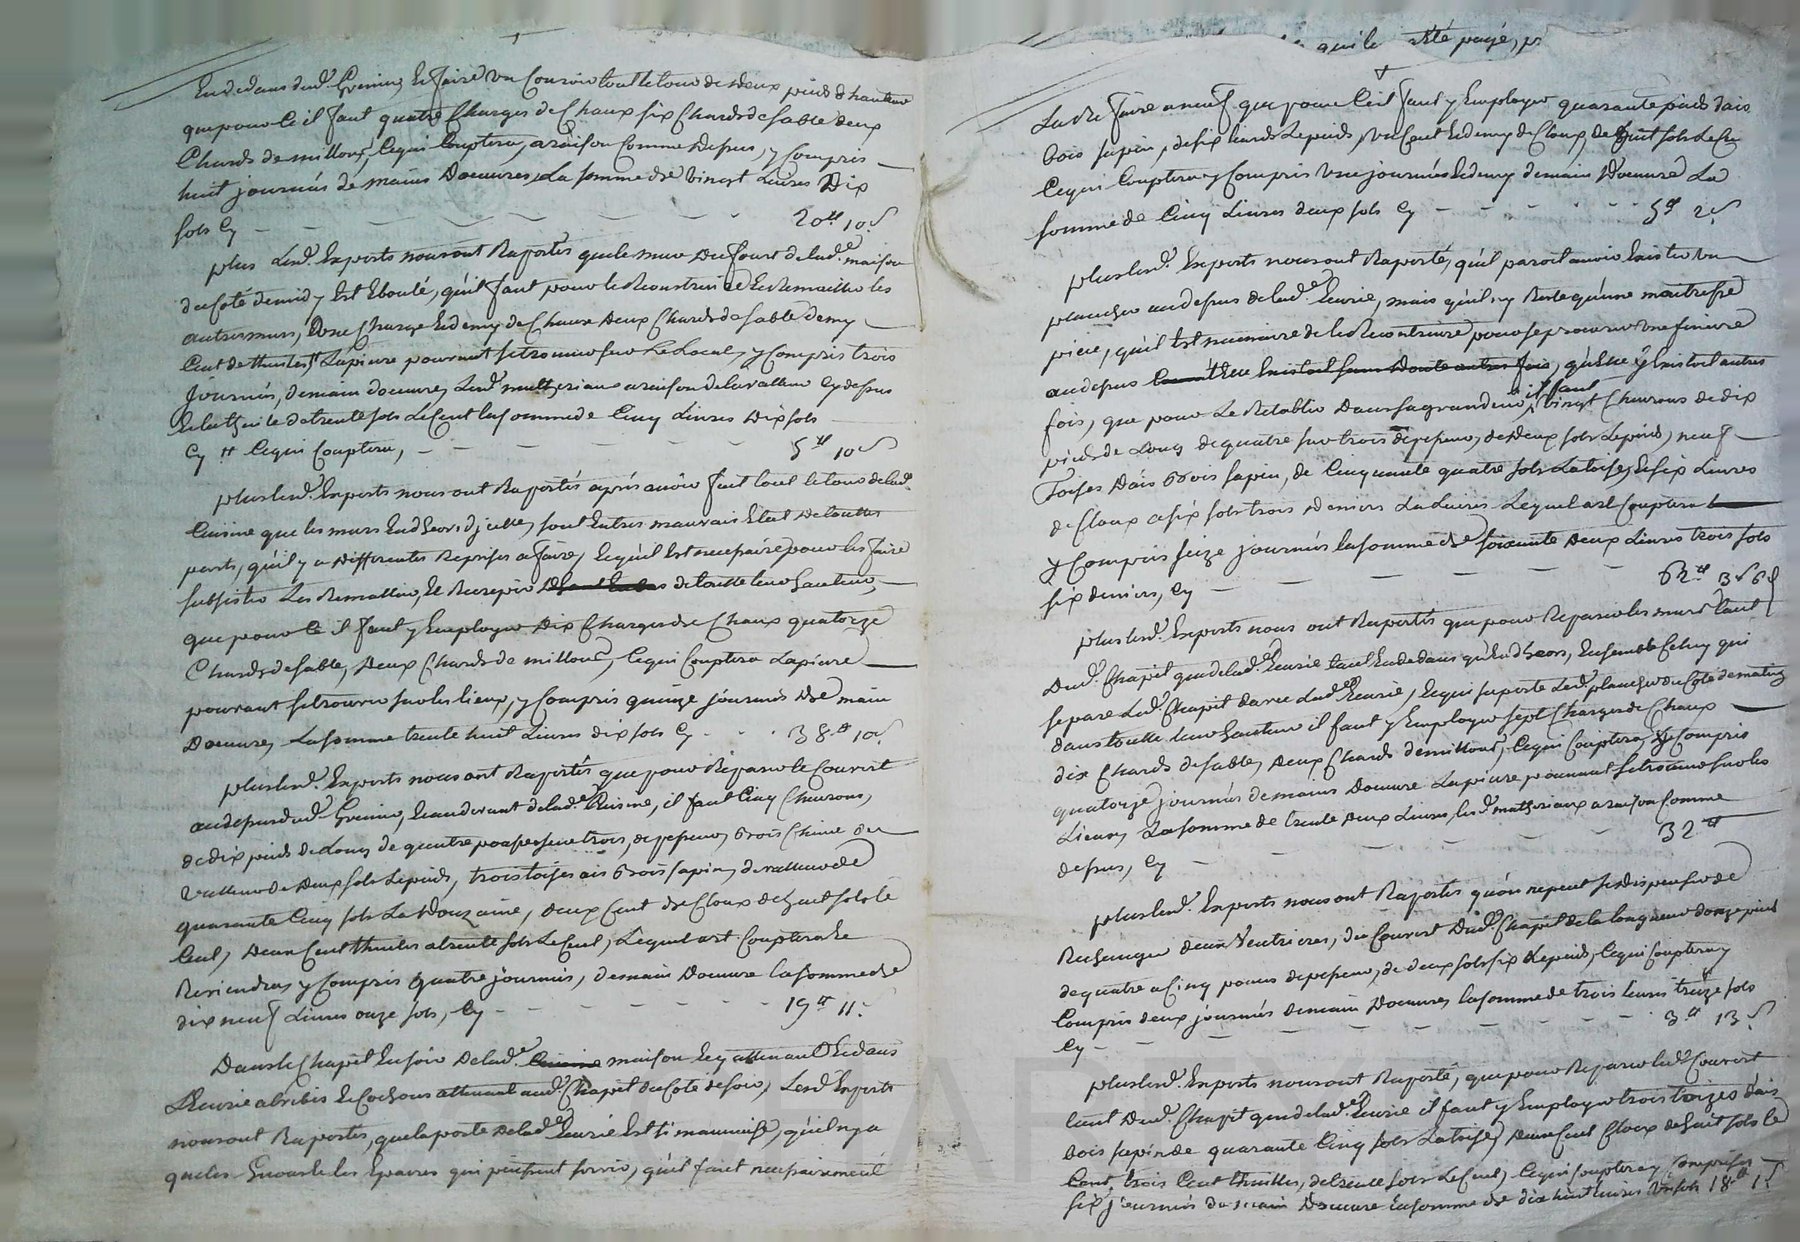 En dedans dud. Grenier, Et faire un Couroir tout le tour de deux pieds d hauteur
que pour Ce il faut quatre Charges de Chaux six Chards de sable deux
Chards de millous, Cequi Couptera, a raison Comme depus, y Compris
huit journées de mains Doeuvres, La somme de vingt Livres Dix
sols Cy - - - - - - 20tt 10s
plus Lesd. Experts nous ont Raportés que le mur du four de lad.e maison
du Coté de midy Est Eboulé, qu'il faut pour le Reconstruire Et Remaillier les
autres murs, une Charge Et demy de Chaux Deux Chards de sable demy
Cent de thuiles, Lapierre pouvant se trouver sur Le Local, y Compris trois
journées, de main doeuvres, Lesd. matteriaux a raison de la valleur Cy depus
Et la thuile de trente sols Le Cent la somme de Cinq Livres Dix sols
Cy tt Cequi Couptera, - - - - - 5tt 10s
plus Lesd. Experts nous ont Raportés après avoir fait tout le tour de lad.e
Cuisine que les murs En dheors djcelle, sont En tres mauvais Etat De touttes
parts, qu'il y a differentes Reprises a faire, Lequ'il Est necepaire pour les faire
subsister Les Remaillier, Et Recrepir de toutte leur hauteur,
que pour Ce il faut y Employer Dix Charges de Chaux quatorze
Chards de sable, Deux Chards de millous, Cequi Couptera Lapierre
pouvant se trouver sur les lieux, y Compris quinze journées De main
Doeuvre, La somme trente huit Livres dix sols Cy - - - 38tt 10s
plus Lesd. Experts nous ont Raportés que pour Reparer le Couvert
au depus dud. Grenier, Et au devant de lad.e Cuisine, il faut Cinq Chevrons,
de dix pieds de Long de quatre pouces sur trois, depepeur, bois Chene du
valleur de Deux sols Le pied, trois toises ais bois sapin, de valleur de
quarante Cinq sols La Douzaine, deux Cent de Cloux de huit sols le
Cent, Deux Cent thuiles a trente sols Le Cent, Lequel art. Couptera Se
Reviendra y Compris quatre journées, de main Doeuvre la somme de
dix neuf Livres onze sols, Cy - - - - - - 19tt 11s
Dans le Chapit En soir De lad.e maison Ecy attenant Et dans
L'Ecurie a brebis Et Cochons attenant aud. Chapit du Coté de soir, Lesd. Experts
nous ont Raportés, que la porte de lad.e Ecurie Est si mauvaise, qu'il n'y a
que les Gonds Et les Eparres qui puissent servir, qu'il faut necepairement
quil a été payé,
La Refaire a neuf que pour Ce il faut y Employer quarante pieds d'ais
bois sapin, de six liards Le pied, un Cent Et demy de Cloux, de huit sols Le Ct
Cequi Couptera y Compris une journée Et demy de main Doeuvre La
somme de Cinq Livres deux sols Cy - - - - - 5tt 2s
plus Lesd. Experts nous ont Raporté, qu'il paroit avoir Existé un
plancher au depus de lad.e Ecurie, mais qu'il ny Reste qu'une maitresse
piece, qu'il Est necepaire de le Reconstruire, pour se procurer une feniere
au depus qu'elle y Existoit autres
fois, que pour Le Retablir Dans sa grandeur, il faut vingt Chevrons de dix
pieds de Long de quatre sur trois depepeur, de deux sols Le pied, neuf
Toises D'ais bois sapin, de Cinquante quatre sols La toise, Et six Livres
de Cloux a six sols trois Deniers La Livre, Lequel art Couptera
y Compris seize journées la somme de soixante Deux Livres trois sols
six deniers, Cy - - - - - - - 62tt 3s 6d
plus Lesd. Experts nous ont Raportés que pour Reparer les murs tant
Dud. Chapit que de lad.e Ecurie tant En dedans qu'En dheors, Ensemble Celuy qui
separe Led. Chapit davec Lad.e Ecurie, Cequi suporte Led. plancher du Coté de matin,
dans toutte leur hauteur il faut y Employer sept Charges de Chaux
dix Chards de sable, Deux Chards de millous, Cequi Couptera, y Compris
quatorze journées de main Doeuvre Lapierre pouvant se trouver sur les
Lieux, La somme de trente deux Livres, Lesd. matheriaux a raison Comme
depus, Cy - - - - - - - 32tt
plus Lesd. Experts nous ont Raportés qu'on ne peut se dispenser de
Rechanger deux Ventrieres, du Couvert Dud. Chapit de la longueur donze pieds
de quatre a Cinq pouces depepeur, de deux sols six Le pied, Cequi Couptera y
Compris deux journées de main Doeuvre, la somme de trois livres treize sols
Cy - - - - - - - - 3tt 13s
plus Lesd. Experts nous ont Raporté, que pour Reparer Led. Couvert
tant Dud. Chapit que de lad.e Ecurie il faut y Employer trois toizes d'ais
bois sapin de quarante Cinq sols La toise, Deux Cent Cloux de huit sols le
Cent, trois Cent thuilles, de trente sols Le Cent, Cequi Couptera y Compris
six journées de main Doeuvre la somme de dix huit livres un sols 18tt 1s